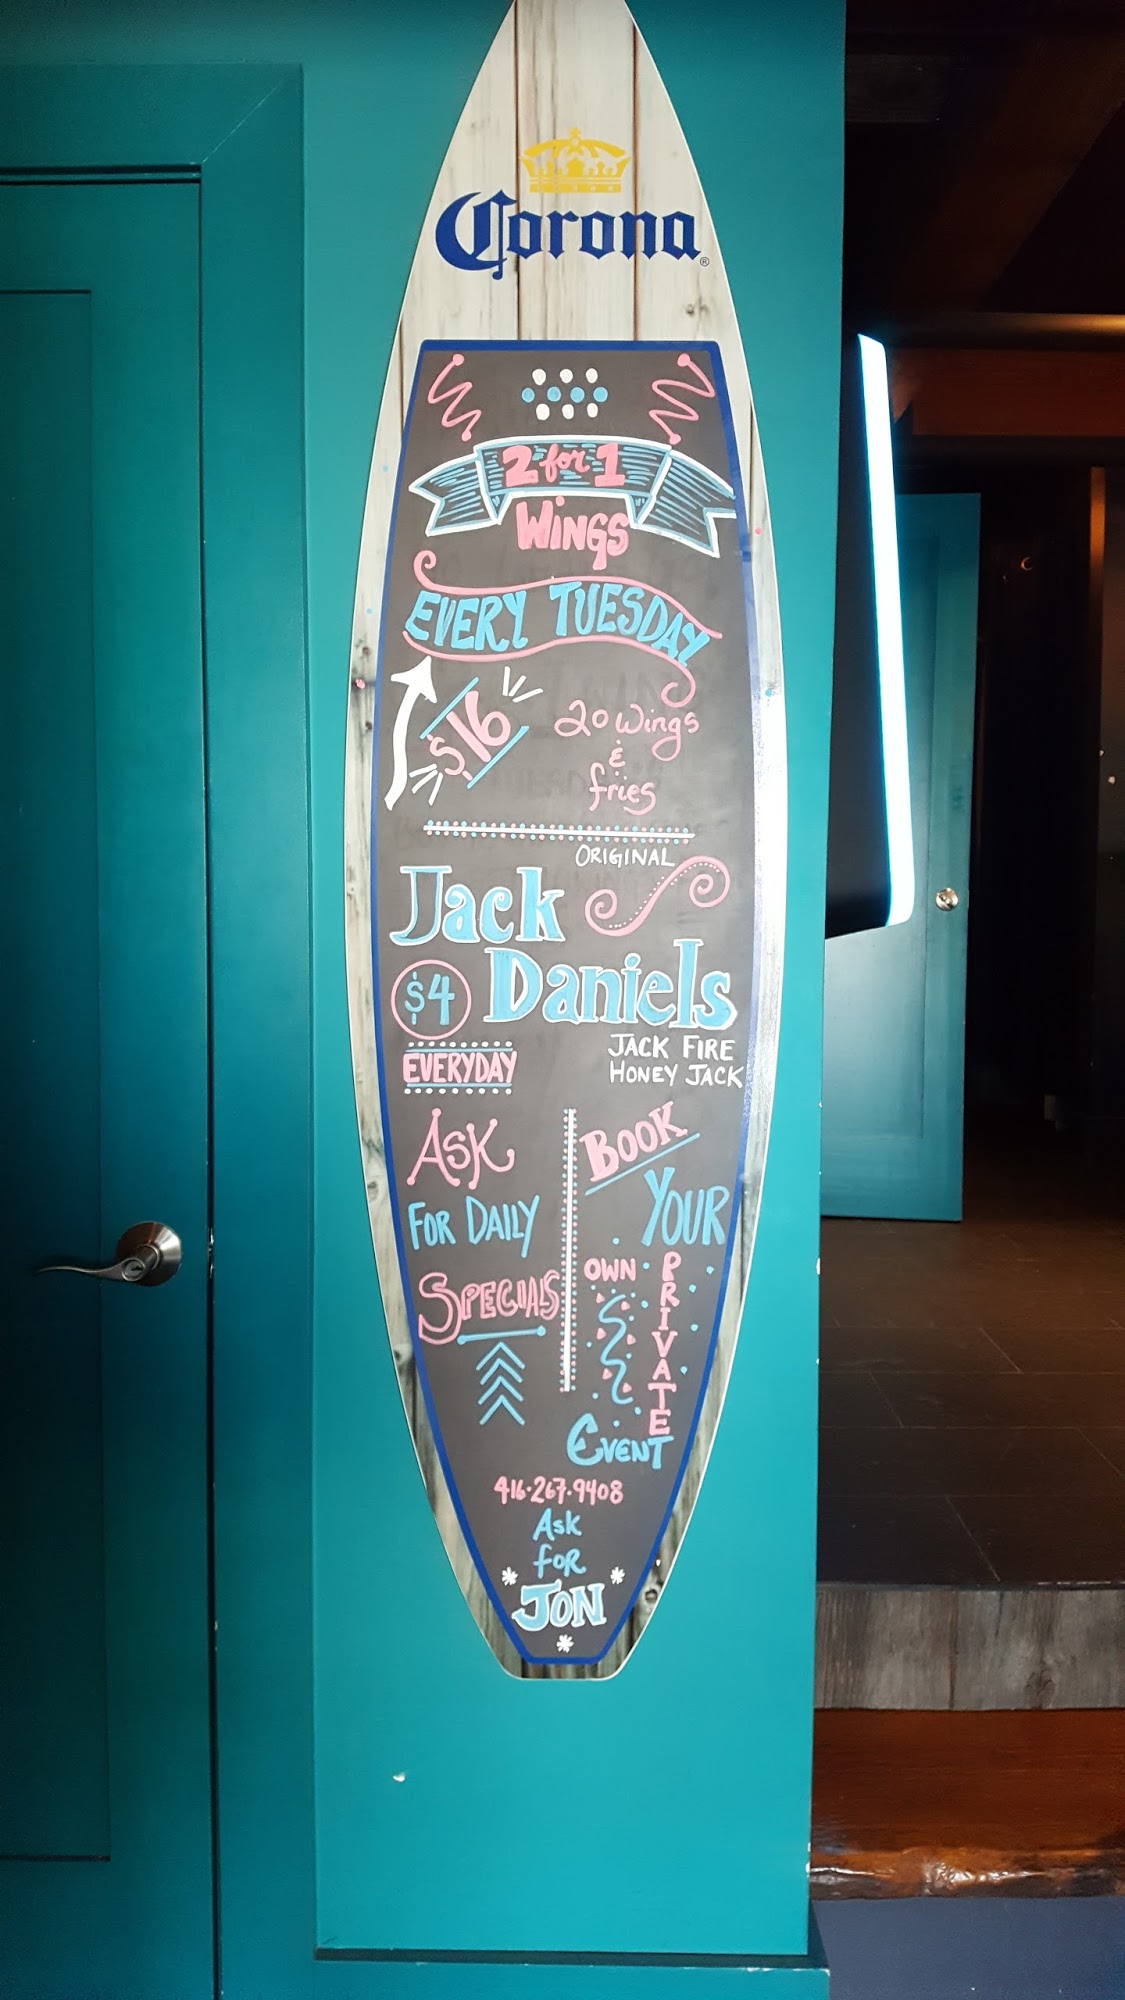 Corona®
2 for 1
WINGS
EVERY TUESDAY
$16
20 wings
&
fries
ORIGINAL
Jack
Daniels
$4
EVERYDAY
JACK FIRE
HONEY JACK
ASK
FOR DAILY
SPECIALS
BOOK
YOUR
OWN
PRIVATE
EVENT
416·267·9408
Ask
foR
JON